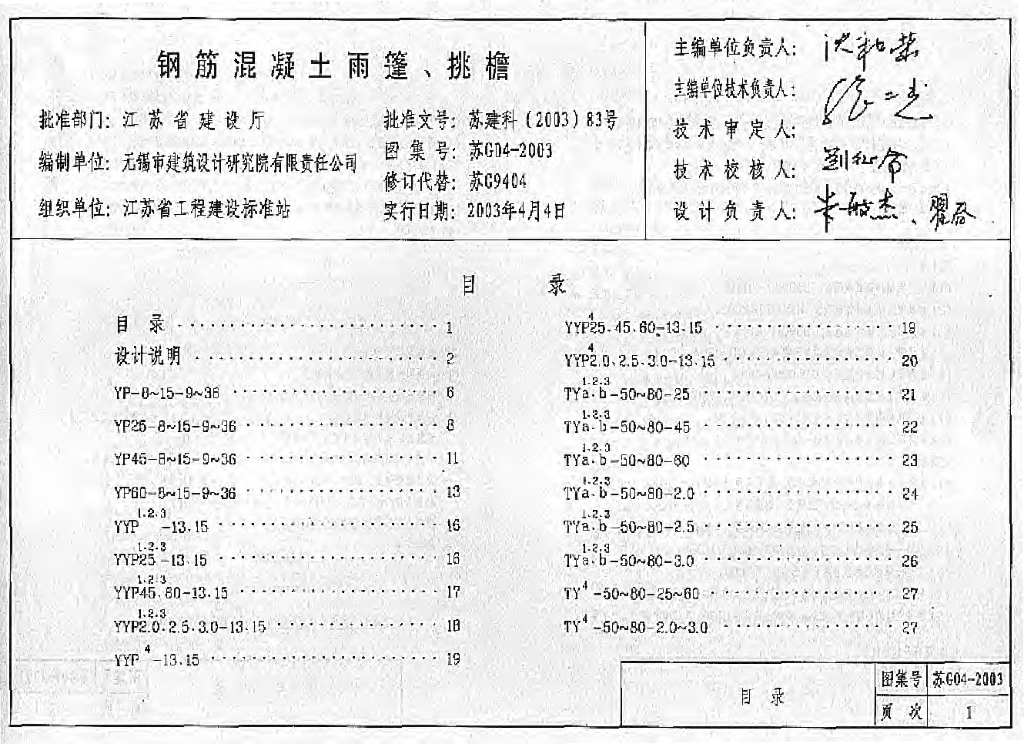 钢筋混凝土雨篷、挑檐
批准部门：江苏省建设厅
批准文号：苏建科(2003)83号
编制单位：无锡市建筑设计研究院有限责任公司
图集号：苏G04-2003
修订代替：苏G9404
组织单位：江苏省工程建设标准站
实行日期：2003年4月4日
主编单位负责人：
主编单位技术负责人：
技术审定人：
技术校核人：
设计负责人：
目 录
目 录 ························ 1
设计说明 ························ 2
YP-8~15-9~36 ························ 6
YP25-8~15-9~36 ························ 8
YP45-8~15-9~36 ························ 11
YP60-8~15-9~36 ························ 13
YYP1.2.3-13.15 ························ 16
YYP25 1.2.3-13.15 ························ 16
YYP45.60 1.2.3-13.15 ························ 17
YYP2.0.2.5.3.0 1.2.3-13.15 ························ 18
YYP4-13.15 ························ 19
YYP25.45.60 4-13.15 ························ 19
YYP2.0.2.5.3.0 4-13.15 ························ 20
TYa.b 1.2.3-50~80-25 ························ 21
TYa.b 1.2.3-50~80-45 ························ 22
TYa.b 1.2.3-50~80-60 ························ 23
TYa.b 1.2.3-50~80-2.0 ························ 24
TYa.b 1.2.3-50~80-2.5 ························ 25
TYa.b 1.2.3-50~80-3.0 ························ 26
TY4-50~80-25~60 ························ 27
TY4-50~80-2.0~3.0 ························ 27
目 录
图集号 苏G04-2003
页 次 1